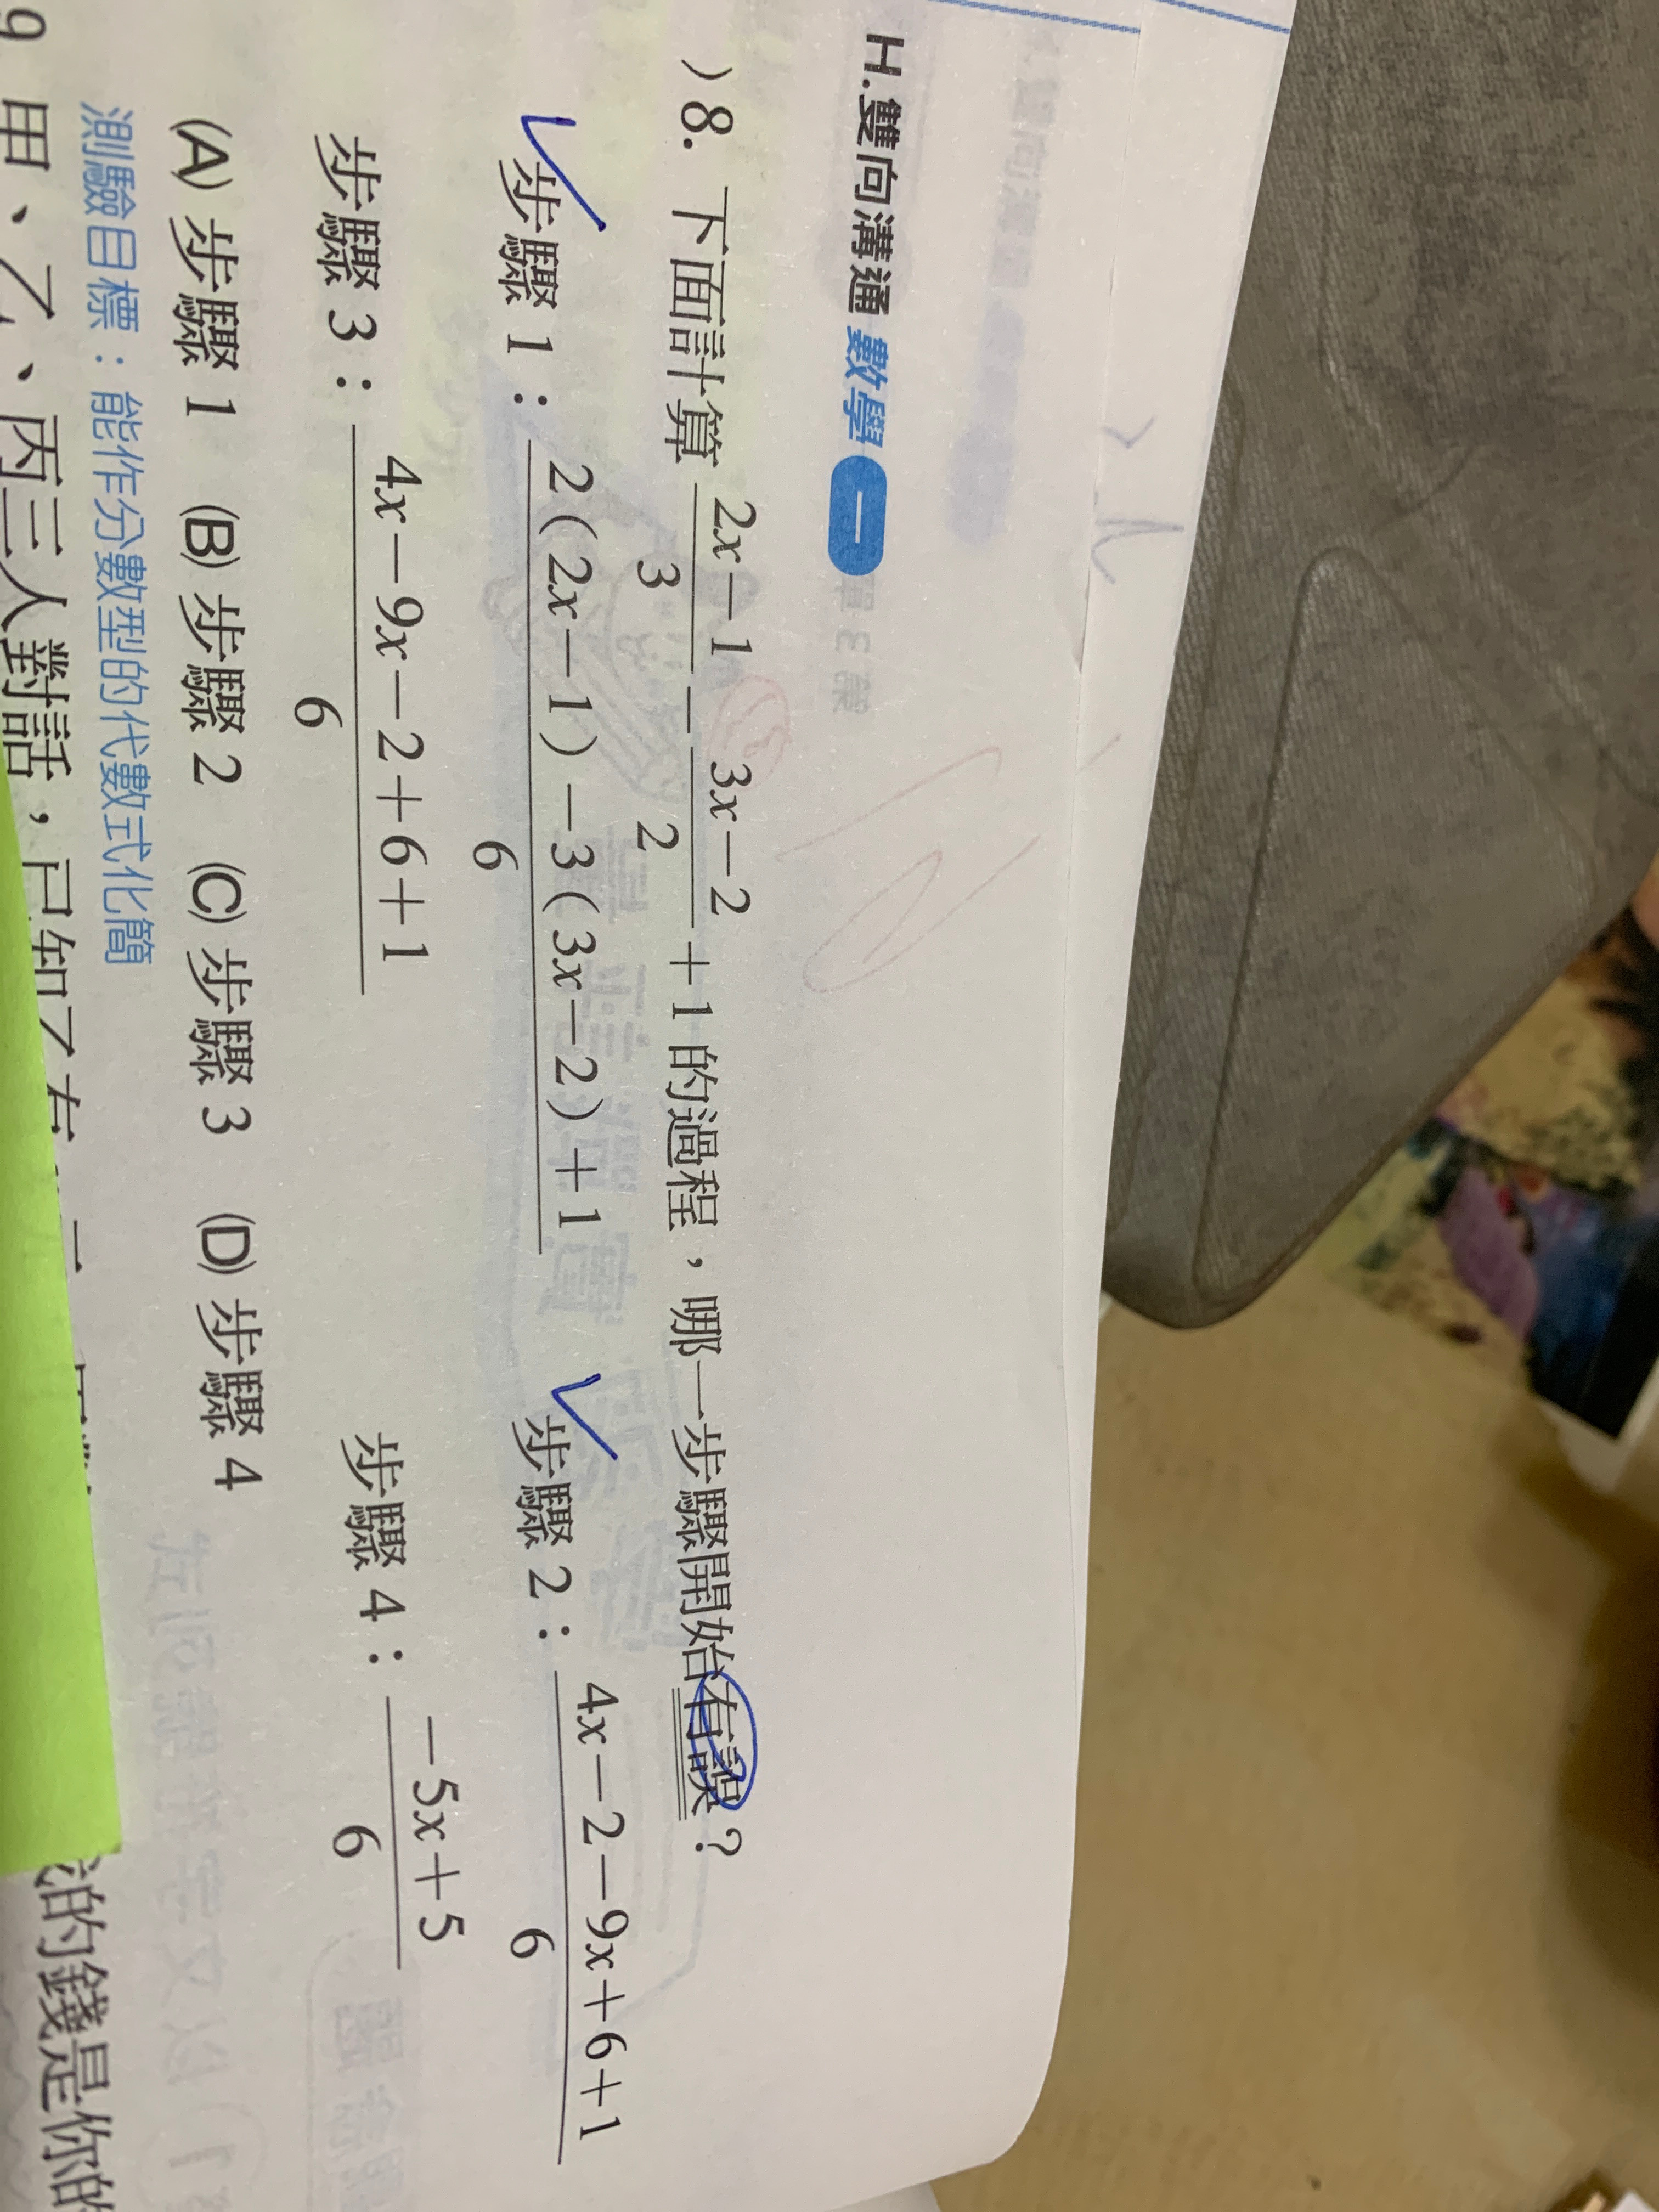 H.雙向溝通 數學 一
)8. 下面計算 \frac{2x－1}{3}－\frac{3x－2}{2}＋1 的過程，哪一步驟開始有誤？
步驟 1：\frac{2(2x－1)－3(3x－2)＋1}{6} 步驟 2：\frac{4x－2－9x＋6＋1}{6}
步驟 3：\frac{4x－9x－2＋6＋1}{6} 步驟 4：\frac{－5x＋5}{6}
(A) 步驟 1 (B) 步驟 2 (C) 步驟 3 (D) 步驟 4
測驗目標：能作分數型的代數式化簡
9 甲、乙、丙三人對話，已知乙有
的錢是你的